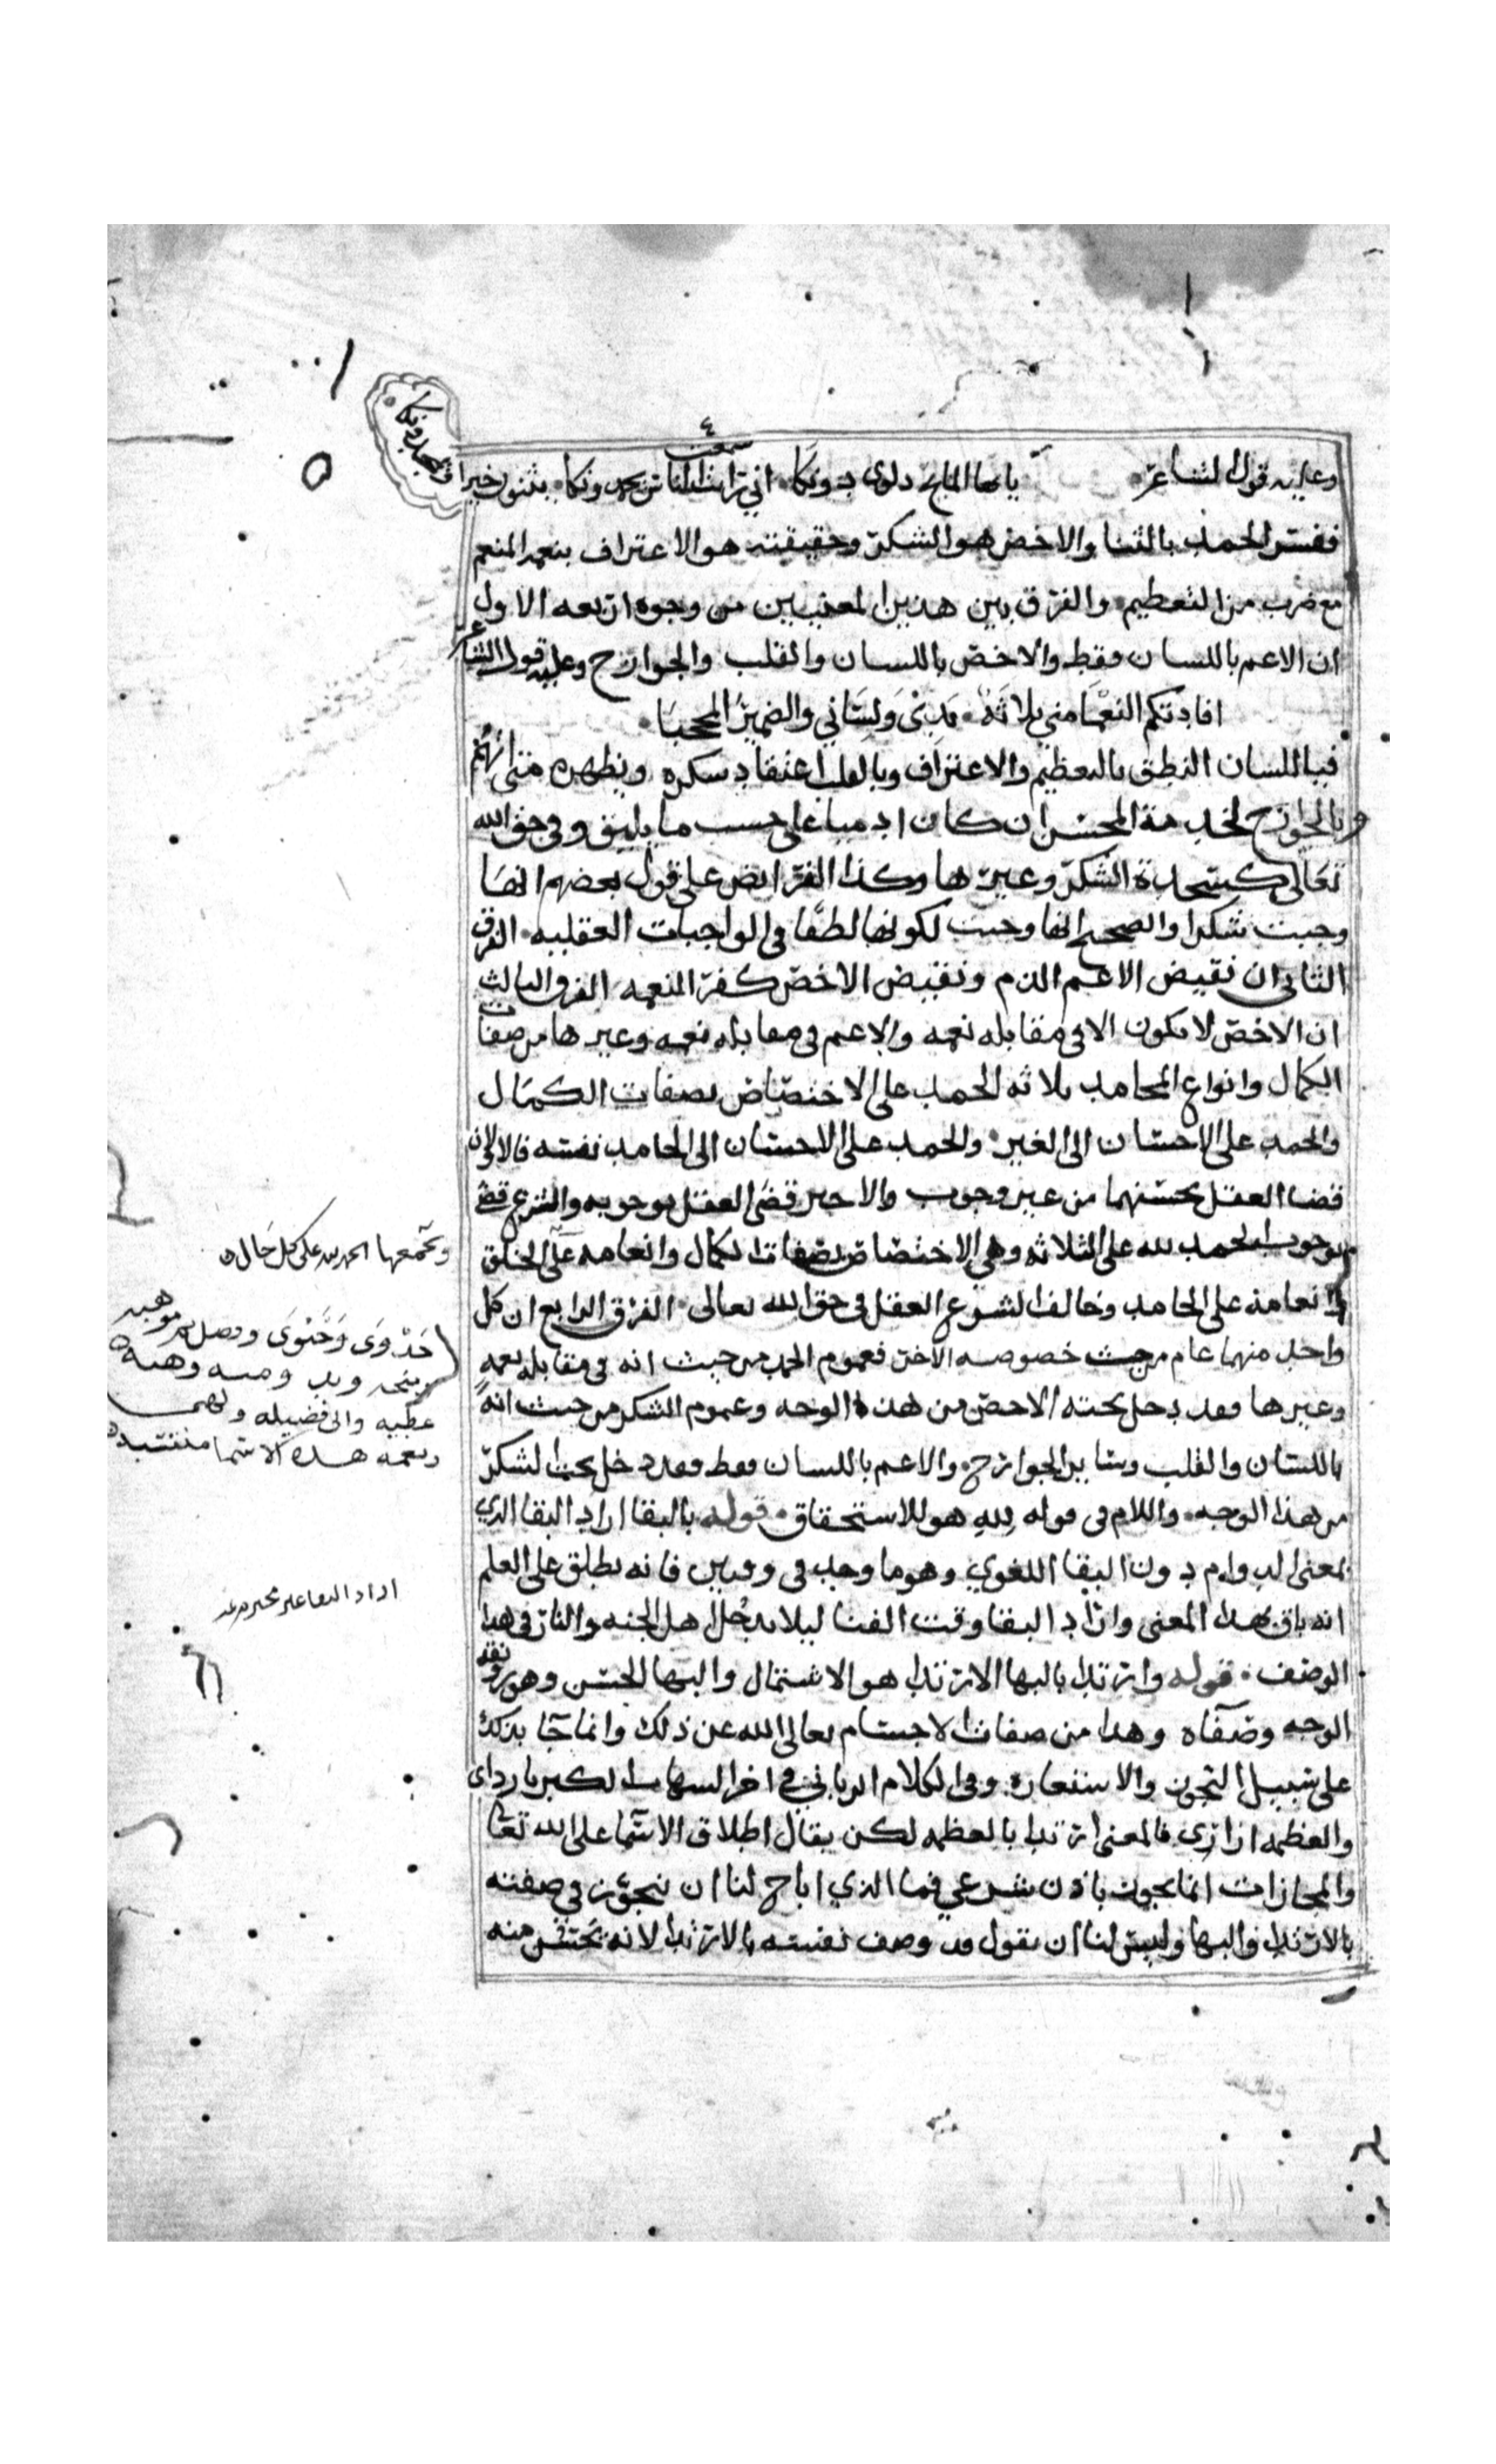 وعليه قول الشاعر يا ايها المايح دلوى دونكا اني رايت الناس يحمدونكا يثنون خيرا
سمعت
ويمجدونكا
ففسر الحمد بالثنا والاخص هو الشكر وحقيقته هو الاعتراف بنعمه المنعم
مع ضرب من التعظيم والفرق بين هذين المعنيين من وجوه اربعه الاول
ان الاعم باللسان فقط والاخص باللسان والقلب والجوارح وعليه قول الشاعر
افادتكم النعما مني ثلاثة يدي ولساني والضمير المحجبا
فباللسان النطق بالتعظيم والاعتراف وبالقلب اعتقاد شكره ويظهره متى اتهم
وبالجوارح لخدمة المحسن ان كان ادميا على حسب ما يليق وفي حق الله
تعالى كسجدة الشكر وغيرها وكذا الفرايض على قول بعضهم انها
وجبت شكرا والصحيح انها وجبت لكونها لطفا في الواجبات العقليه الفرق
الثاني ان نقيض الاعم الذم ونقيض الاخص كفر النعمه الفرق الثالث
ان الاخص لا يكون الا في مقابله نعمه والاعم في مقابله نعمه وغيرها من صفات
الكمال وانواع المحامد ثلاثه الحمد على الاختصاص بصفات الكمال
والحمد على الاحسان الى الغير والحمد على الاحسان الى الحامد نفسه فالاولان
قضا العقل بحسنهما من غير وجوب والاخير قضى العقل بوجوبه والشرع قضى
بوجوب الحمد لله على الثلاثه وهي الاختصاص بصفات الكمال وانعامه على الخلق
وانعامه على الحامد وخالف الشرع العقل في حق الله تعالى الفرق الرابع ان كل
واحد منهما عام من حيث خصوصه الاخر فعموم الحمد من حيث انه في مقابله نعمه
وغيرها فقد دخل تحته الاخص من هذه الوجه وعموم الشكر من حيث انه
باللسان والقلب وساير الجوارح والاعم باللسان فقط فقد دخل تحت الشكر
من هذا الوجه واللام في قوله لله هو للاستحقاق قوله بالبقا اراد البقا الذي
بمعنى الدوام دون البقا اللغوي وهو ما وجد في وقتين فانه يطلق على العلم
انه باق بهذا المعنى واراد البقا وقت الفنا ليلا يدخل اهل الجنه والنار في هذا
الوصف قوله وارتدا بالبها الارتدا هو الاشتمال والبها الحسن وهو رونقه
الوجه وصفاه وهذا من صفات الاجسام تعالى الله عن ذلك وانما جا بذلك
على سبيل التجوز والاستعارة وفي الكلام الرباني في اخر السهاب الكبريا رداى
والعظمه ازاري فالمعنى ارتدا بالعظمه لكن يقال اطلاق الاسما على الله تعا
والمجازات انما يجوز باذن شرعي فما الذي اباح لنا ان نتجوز في صفته
بالارتدا والبها وليس لنا ان نقول قد وصف نفسه بالارتدا لانه يحتقر منه
ويجمعها الحمد لله على كل حال
جدوى وحنوى وفصل موهبه
عطيه والى فضيله ولهى
ونعمه هذه الاسما
اراد البقا